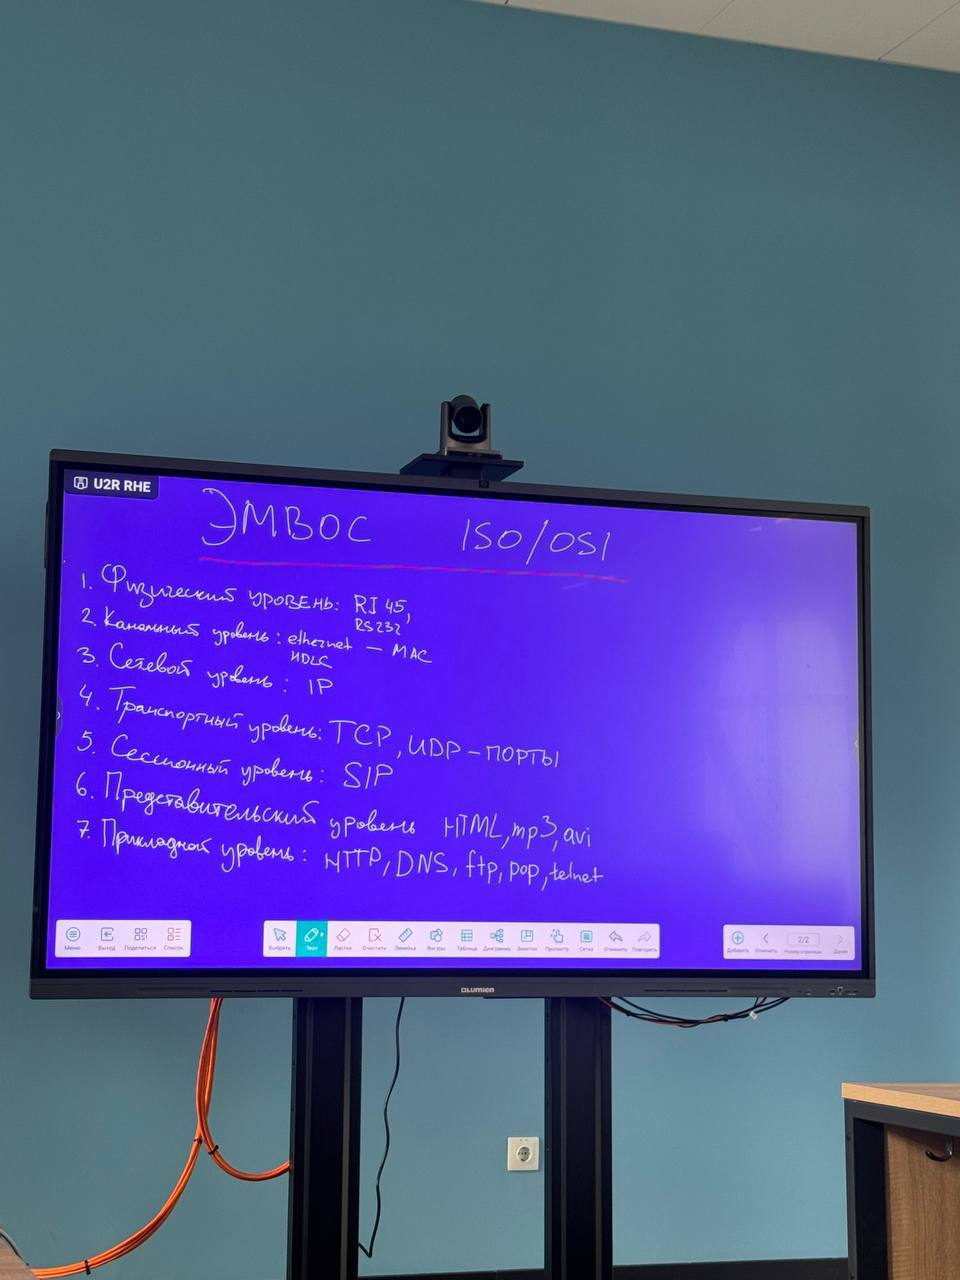 U2R RHE
ЭМВОС ISO/OSI
1. Физический уровень: RJ 45,
RS232
2. Канальный уровень: ethernet — MAC
HDLC
3. Сетевой уровень: IP
4. Транспортный уровень: TCP, UDP – ПОРТЫ
5. Сессионный уровень: SIP
6. Представительский уровень HTML, mp3, avi
7. Прикладной уровень: HTTP, DNS, ftp, pop, telnet
Меню Выход Поделиться Список Выбрать Перо Ластик Очистить Линейка Фигуры Таблица Диаграмма Заметки Просмотр Сетка Отменить Повторить Добавить 2/2 Номер страницы Далее
Lumien